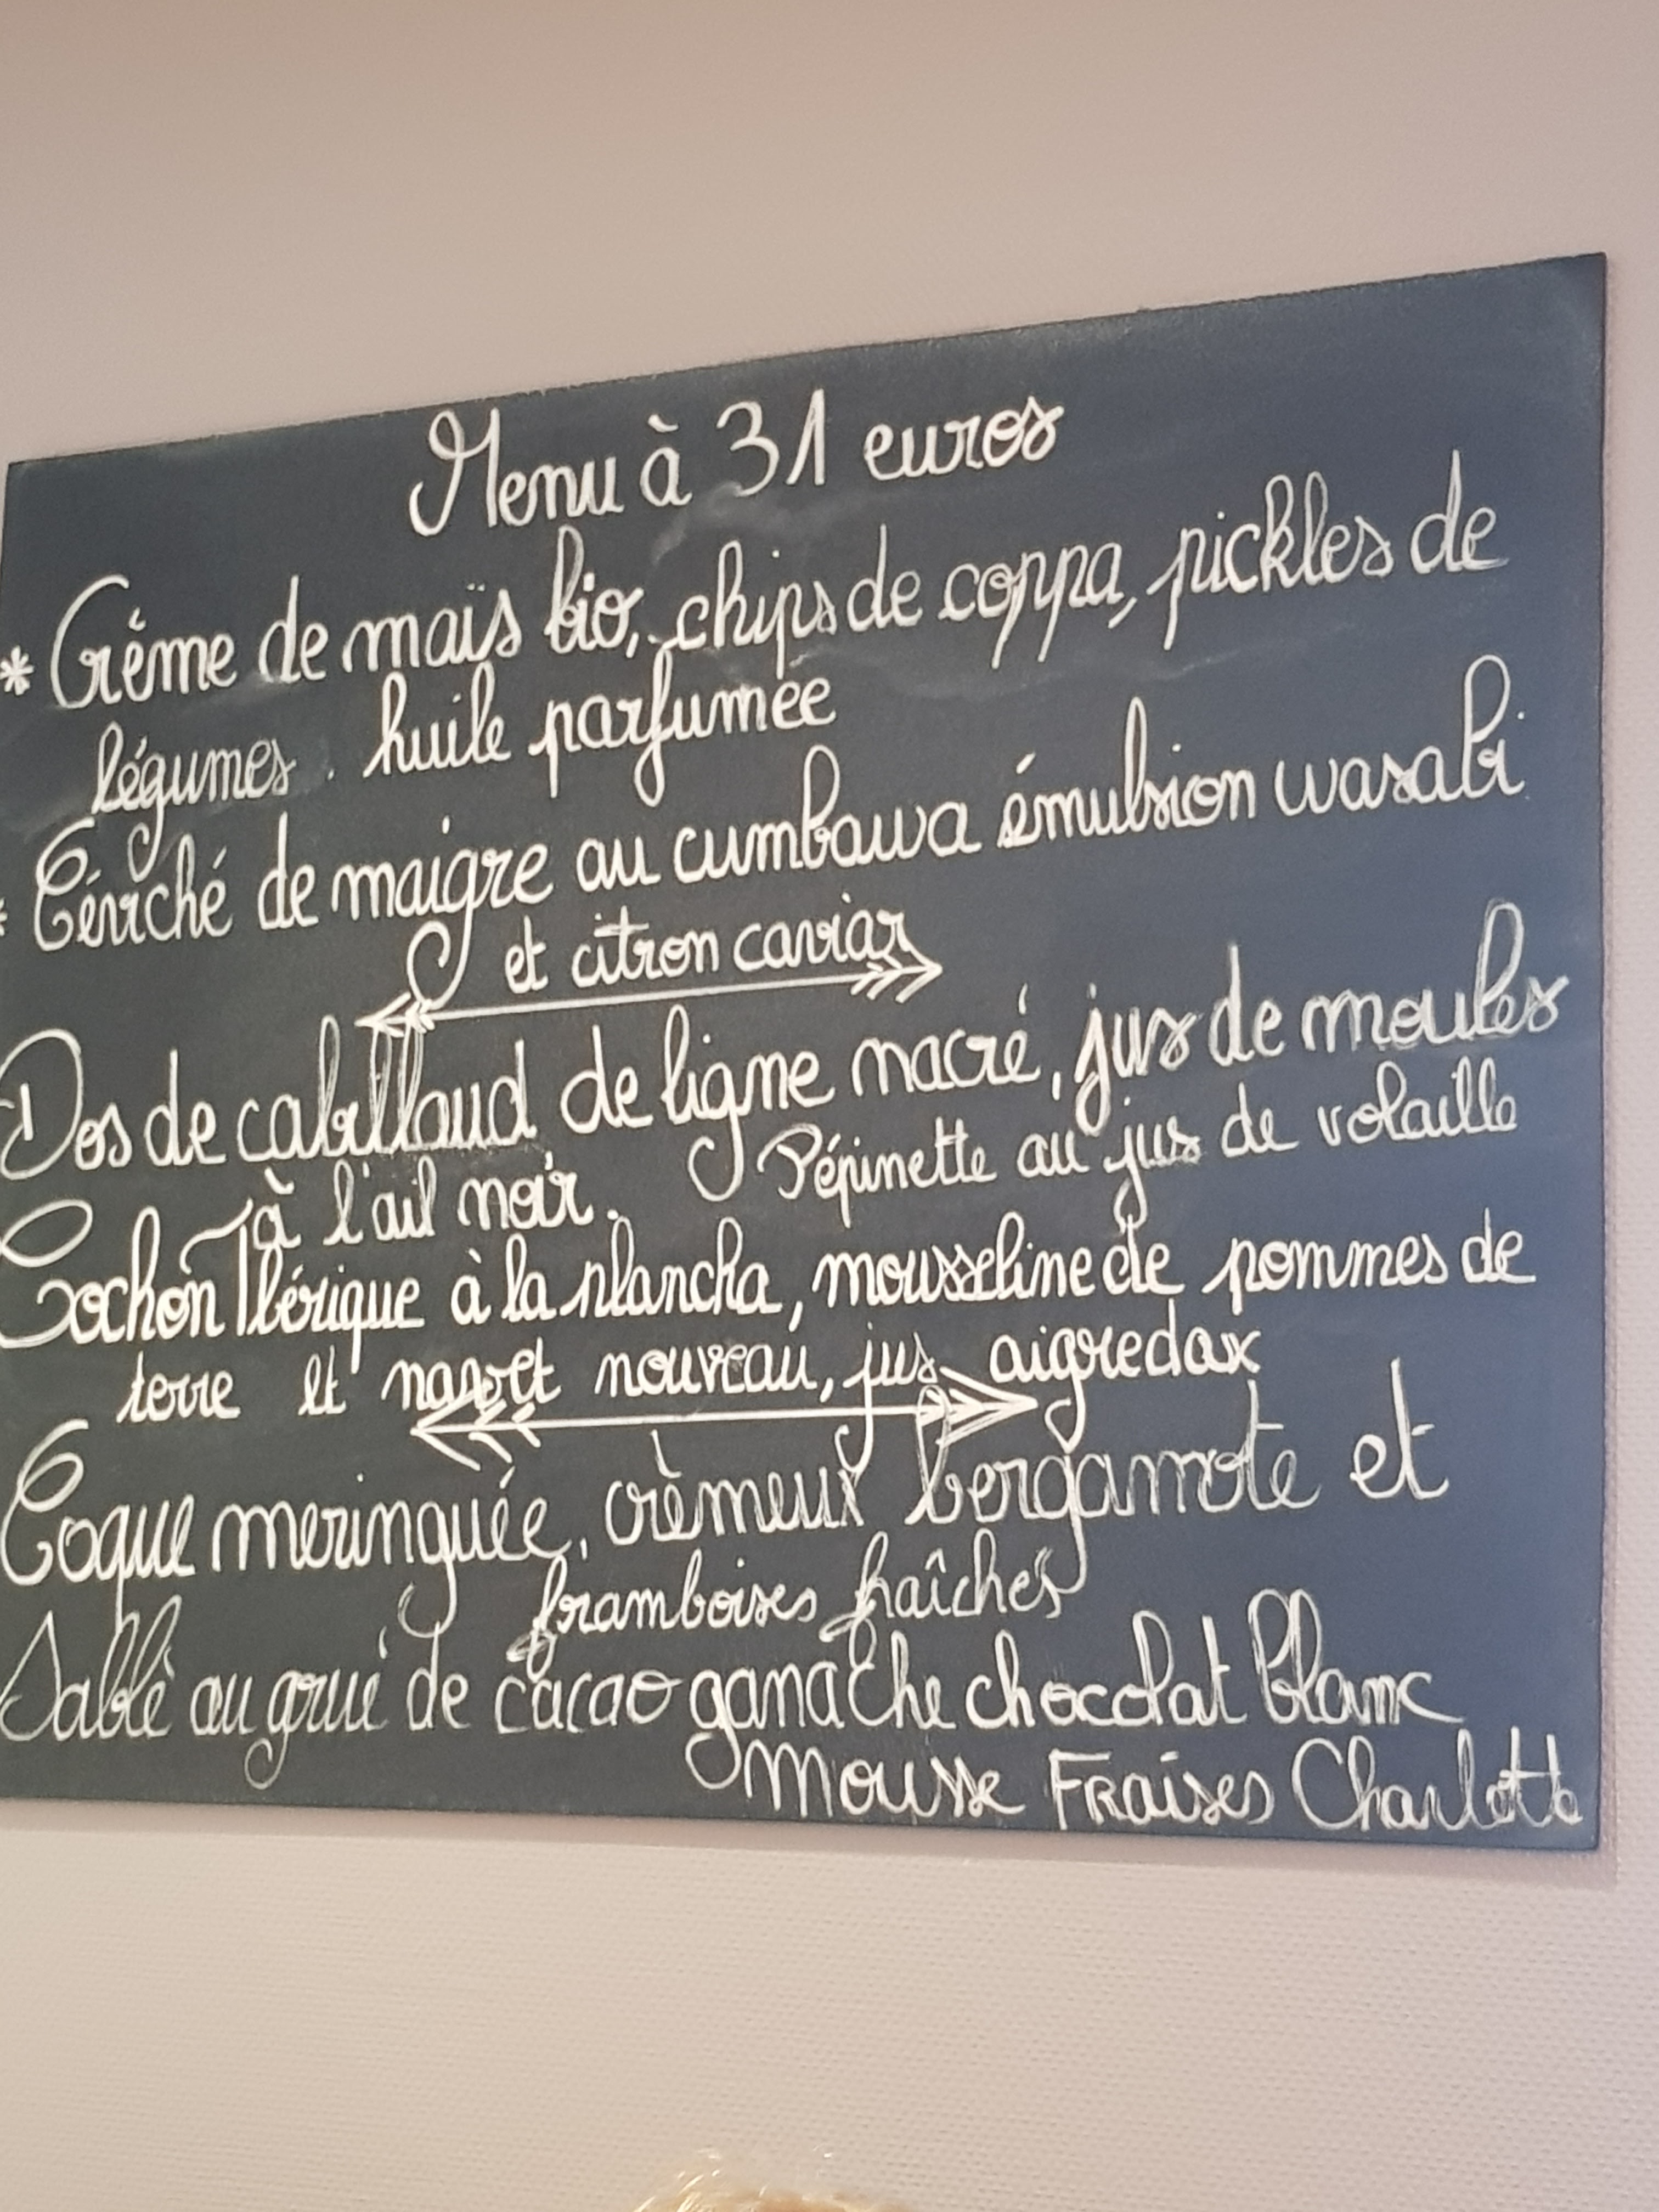 Menu à 31 euros
* Crème de maïs bio, chips de coppa, pickles de
légumes. huile parfumée
* Céviché de maigre au cumbawa émulsion wasabi
et citron caviar
Dos de cabillaud de ligne nacré, jus de moules
à l'ail noir. Pépinette au jus de volaille
Cochon Ibérique à la plancha, mousseline de pommes de
terre et navet nouveau, jus aigredox
Coque meringuée, crèmeux bergamote et
framboises fraîches
Sablé au grué de cacao ganache chocolat blanc
Mousse Fraises Charlotte